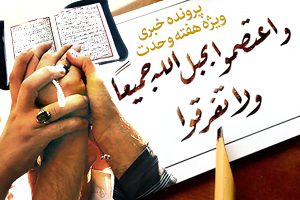 پرونده خبری
ویژه هفته وحدت
واعتصموا بحبل الله جمیعاً
ولا تفرقوا